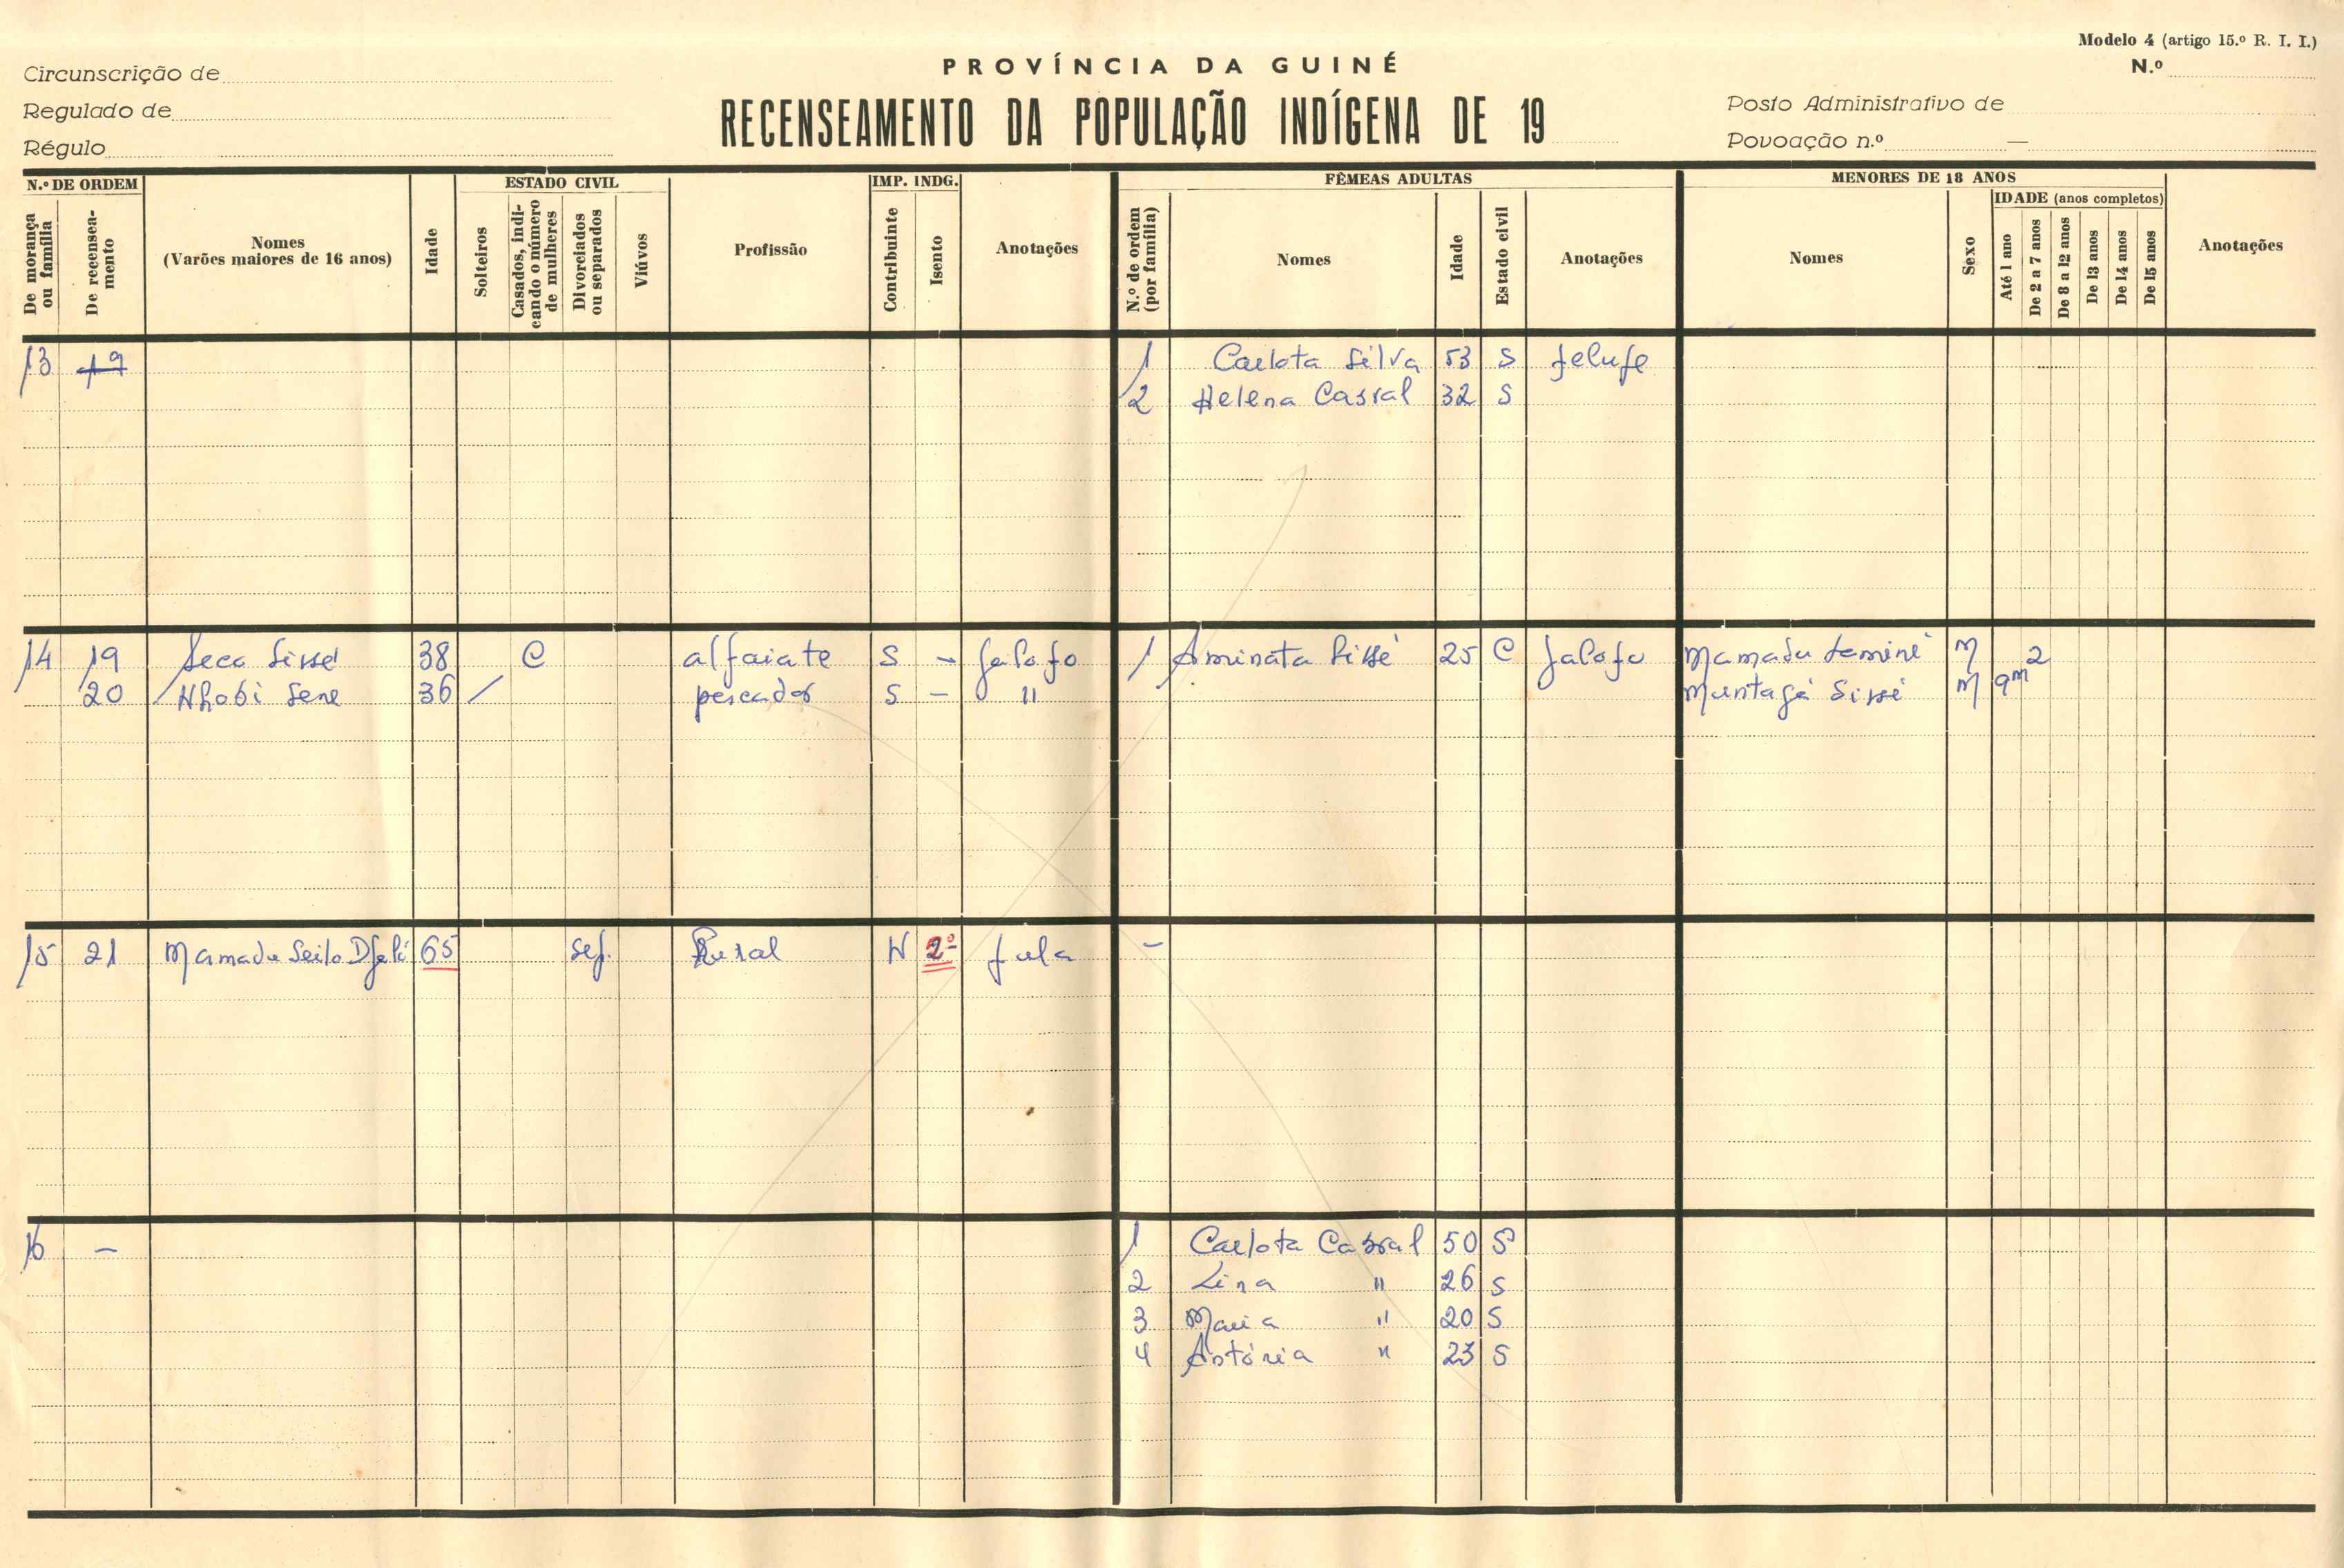 Modelo 4 (artigo 15.º R. I. I.)
PROVÍNCIA DA GUINÉ
N.º
Circunscrição de
Regulado de
Régulo
RECENSEAMENTO DA POPULAÇÃO INDÍGENA DE 19
Posto Administrativo de
Povoação n.º —
N.º DE ORDEM
De morança ou família
De recensea-mento
Nomes
(Varões maiores de 16 anos)
Idade
ESTADO CIVIL
Solteiros
Casados, indi-cando o número de mulheres
Divorciados ou separados
Viúvos
Profissão
IMP. INDG.
Contribuinte
Isento
Anotações
FÊMEAS ADULTAS
N.º de ordem (por família)
Nomes
Idade
Estado civil
Anotações
MENORES DE 18 ANOS
Nomes
Sexo
IDADE (anos completos)
Até 1 ano
De 2 a 7 anos
De 8 a 12 anos
De 13 anos
De 14 anos
De 15 anos
Anotações
13 19 1 Carlota Silva 53 S
2 Helena Casral 32 S
14 19 Seco Sissé 38 C alfaiate S - Jalofo 1 Aminata Sissé 25 C Jalofo Mamadu M 2
20 Nhobi Sene 36 / pescador S - " Muntagá Sissé M 9m
15 21 Mamadu Seilo Djaló 65 sep. Rural N 2º fula -
16 - 1 Carlota Cabral 50 S
2 Lina " 26 S
3 Maria " 20 S
4 Antónia " 23 S